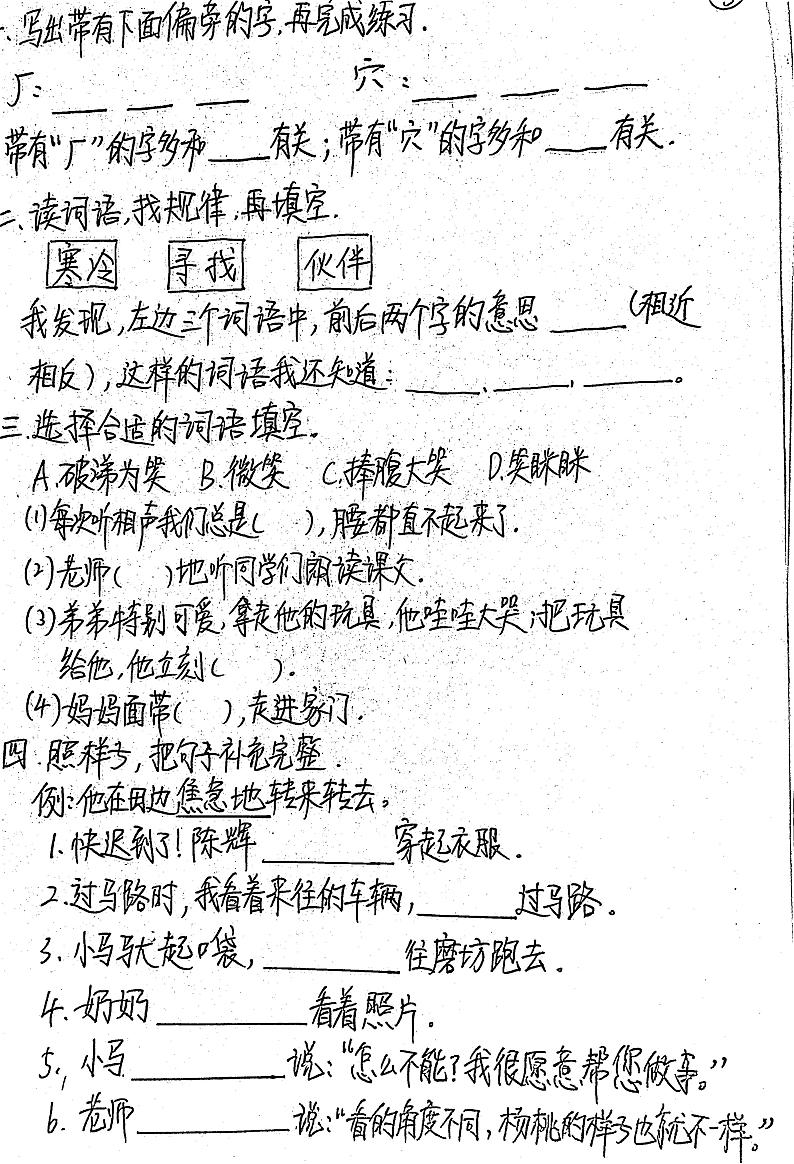 一、写出带有下面偏旁的字,再完成练习.
厂: ___ ___ ___ 穴: ___ ___ ___
带有“厂”的字多和____有关;带有“穴”的字多和____有关.
二、读词语,找规律,再填空.
寒冷 寻找 伙伴
我发现,左边三个词语中,前后两个字的意思_____(相近
相反),这样的词语我还知道:_____、_____,_____。
三.选择合适的词语填空。
A.破涕为笑 B.微笑 C.捧腹大笑 D.笑眯眯
(1)每次听相声我们总是( ),腰都直不起来了.
(2)老师( )地听同学们朗读课文.
(3)弟弟特别可爱,拿走他的玩具,他哇哇大哭;把玩具
给他,他立刻( ).
(4)妈妈面带( ),走进家门.
四.照样子,把句子补充完整.
例:他在田边焦急地转来转去。
1.快迟到了!陈辉________穿起衣服.
2.过马路时,我看着来往的车辆,______过马路。
3.小马驮起口袋,________往磨坊跑去.
4.奶奶_________看着照片.
5.,小马_________说:“怎么不能?我很愿意帮您做事。”
6.老师_________说:“看的角度不同,杨桃的样子也就不一样。”